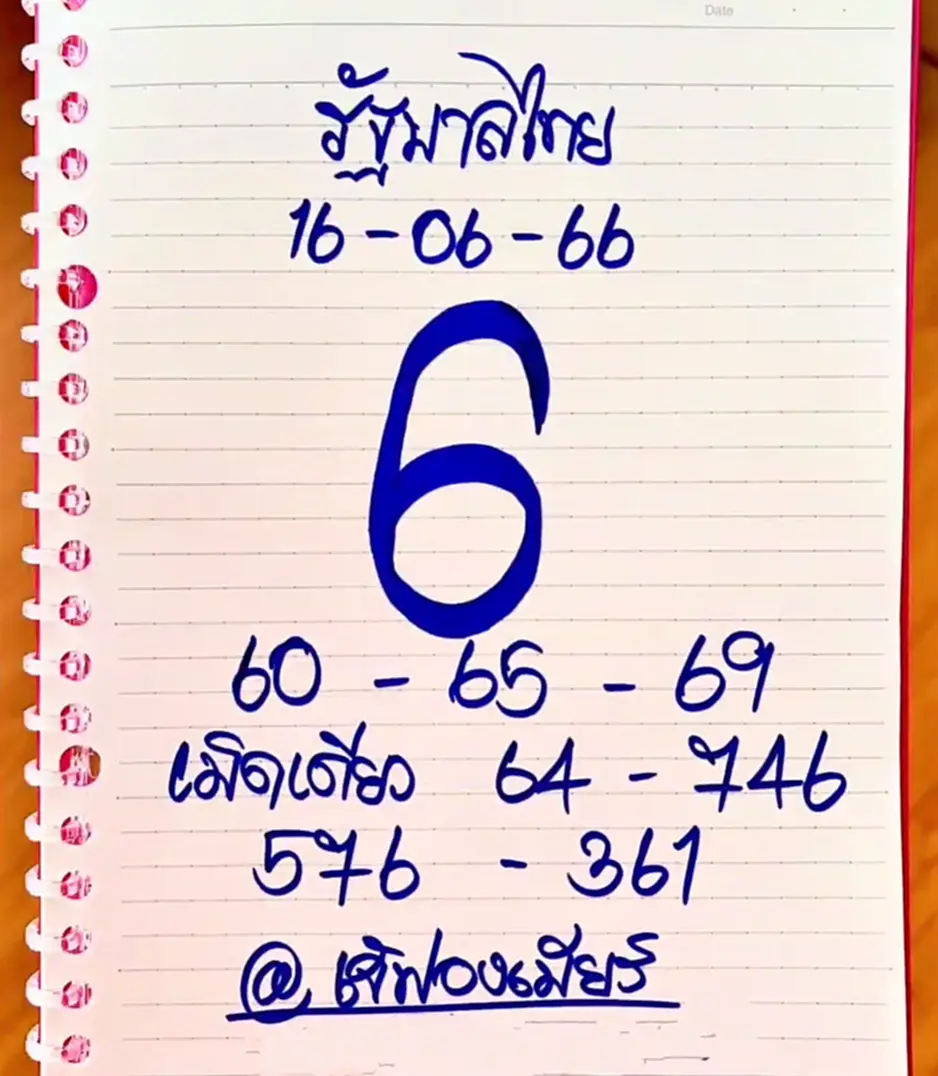 Date
รัฐบาลไทย
16-06-66
6
60 - 65 - 69
เม็ดเดียว 64 - 746
576 - 361
@